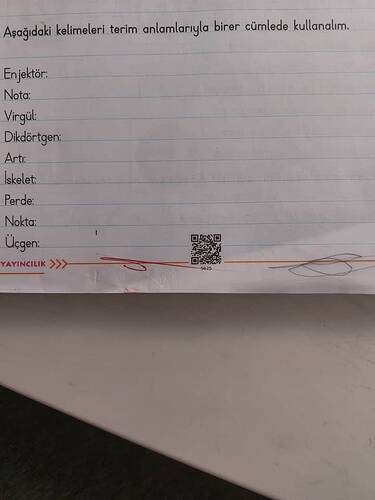 Aşağıdaki kelimeleri terim anlamlarıyla birer cümlede kullanalım.
Enjektör:
Nota:
Virgül:
Dikdörtgen:
Artı:
İskelet:
Perde:
Nokta:
Üçgen:
YAYINCILIK
5625